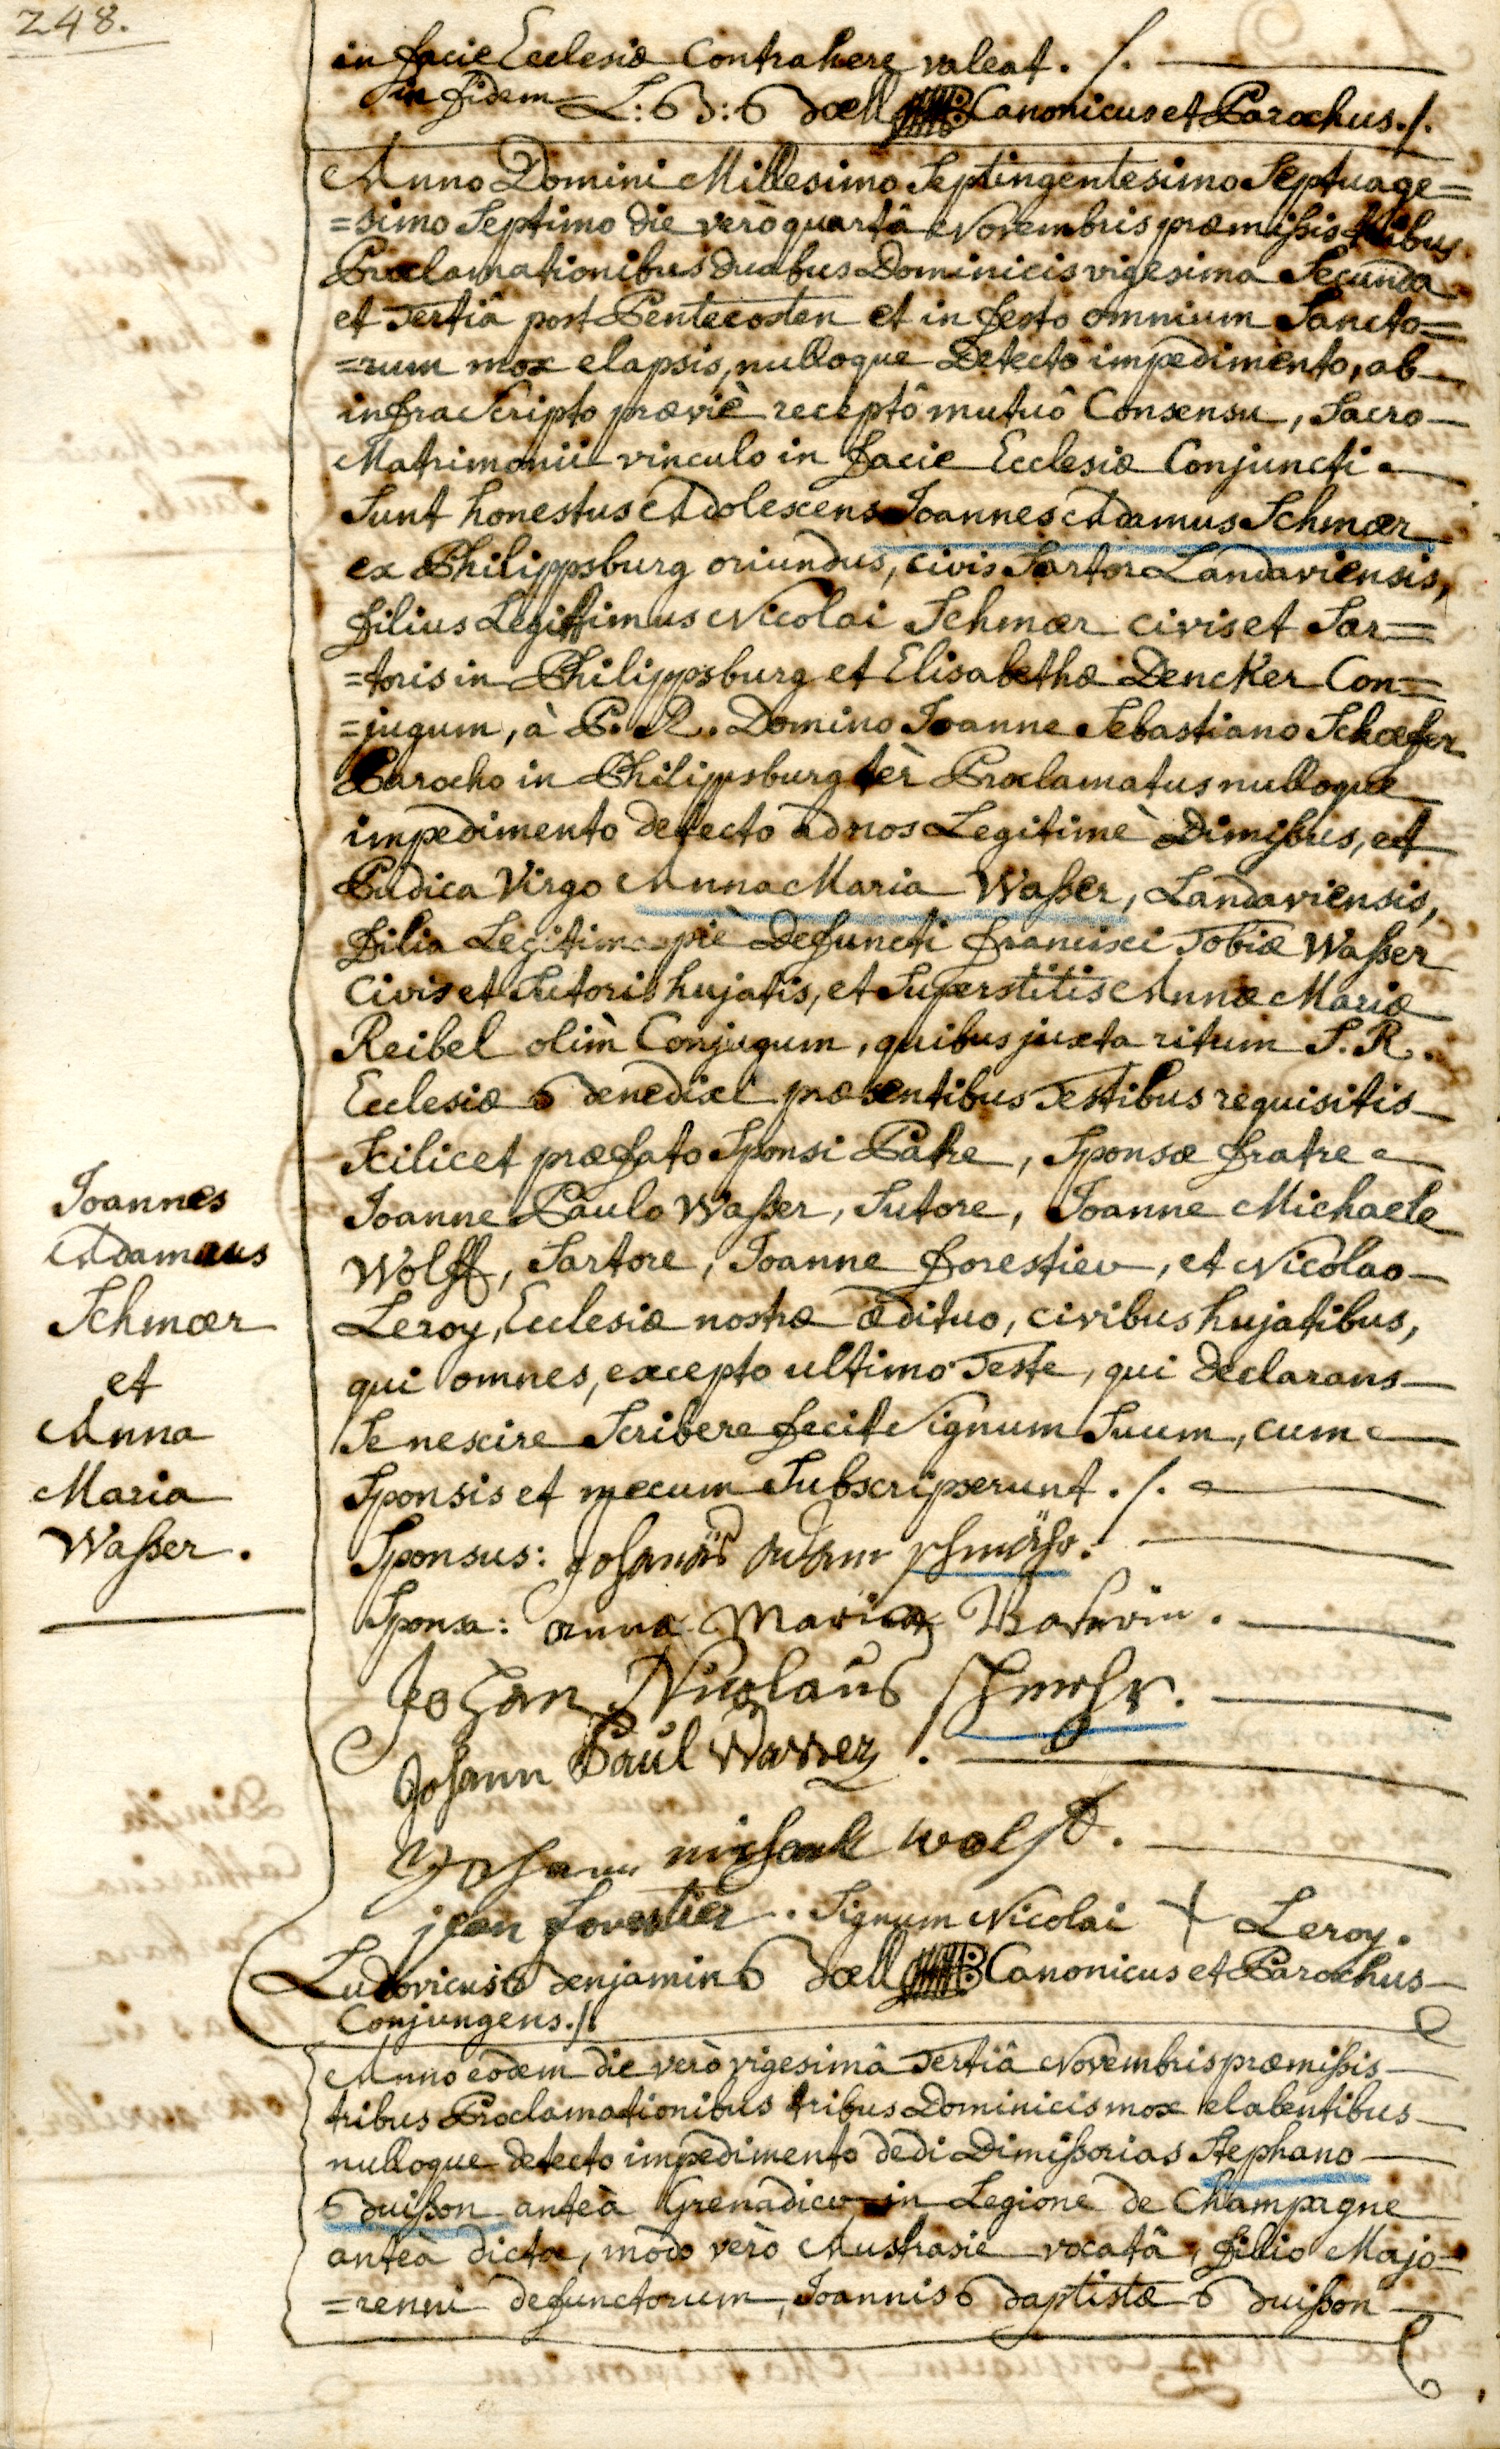 248.
in facie Ecclesiæ Contrahere valeat. /.
in fidem L: B: Boell Canonicus et Parochus./.
Anno Domini Millesimo Septingentesimo Septuage=
=simo Septimo die verò quartâ Novembris præmißis tribus
Proclamationibus duabus Dominicis vigesima Secunda
et Tertiâ post Pentecosten et in festo omnium Sancto=
=rum mox elapsis, nulloque Detecto impedimento, ab
infra Scripto præviè receptô mutuô Consensu, Sacro
Matrimonii vinculo in facie Ecclesiæ Conjuncti
Sunt honestus Adolescens Joannes Adamus Schmær
ex Philippsburg oriundus, civis Sartor Landaviensis,
filius Legittimus Nicolai Schmær civis et Sar=
=toris in Philippsburg et Elisabethæ Dencker Con=
=jugum, à P. R. Domino Joanne Sebastiano Schæfer
Parocho in Philippsburg tèr Proclamatus nulloque
impedimento detecto ad nos Legitimè Dimißus, et
Pudica Virgo Anna Maria Waßer, Landaviensis,
filia Legitima piè Defuncti francisci Tobiæ Waßer
Civis et Sutoris hujatis, et Superstitis Annæ Mariæ
Reibel olìm Conjugum, quibus juxta ritum S. R.
Ecclesiæ Benedixi præsentibus Testibus requisitis
Scilicet præfato Sponsi Patre, Sponsæ fratre
Joanne Paulo Waßer, Sutore, Joanne Michaele
Wolff, Sartore, Joanne forestier, et Nicolao
Leroy, Ecclesiæ nostræ ædituo, civibus hujatibus,
qui omnes, excepto ultimo Teste, qui declarans
Se nescire Scribere fecit Signum Suum, cum
Sponsis et mecum Subscripserunt. /.
Joannes
Adamus
Schmær
et
Anna
Maria
Waßer.
Sponsus: Johanäs adam schmähr.
Sponsa: anna Maria Waserin.
Johan Nicolaus schmehr.
Johann Paul Wasser.
Johann michaell wolff.
jean forestier. Signum Nicolai + Leroy.
Ludovicus Benjamin Boell Canonicus et Parochus
Conjungens./.
Anno eodem die verò vigesimâ Tertiâ Novembris præmißis
tribus Proclamationibus tribus Dominicis mox elabentibus
nulloque detecto impedimento dedi Dimißorias Stephano
Buißon anteà Grenadier in Legione de Champagne
anteà dicta, modo verò Austrasie vocatâ, filio Majo=
=renni defunctorum, Joannis Baptistæ Buißon